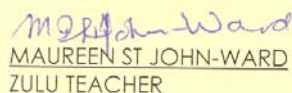 M St John-Ward
MAUREEN ST JOHN-WARD
ZULU TEACHER